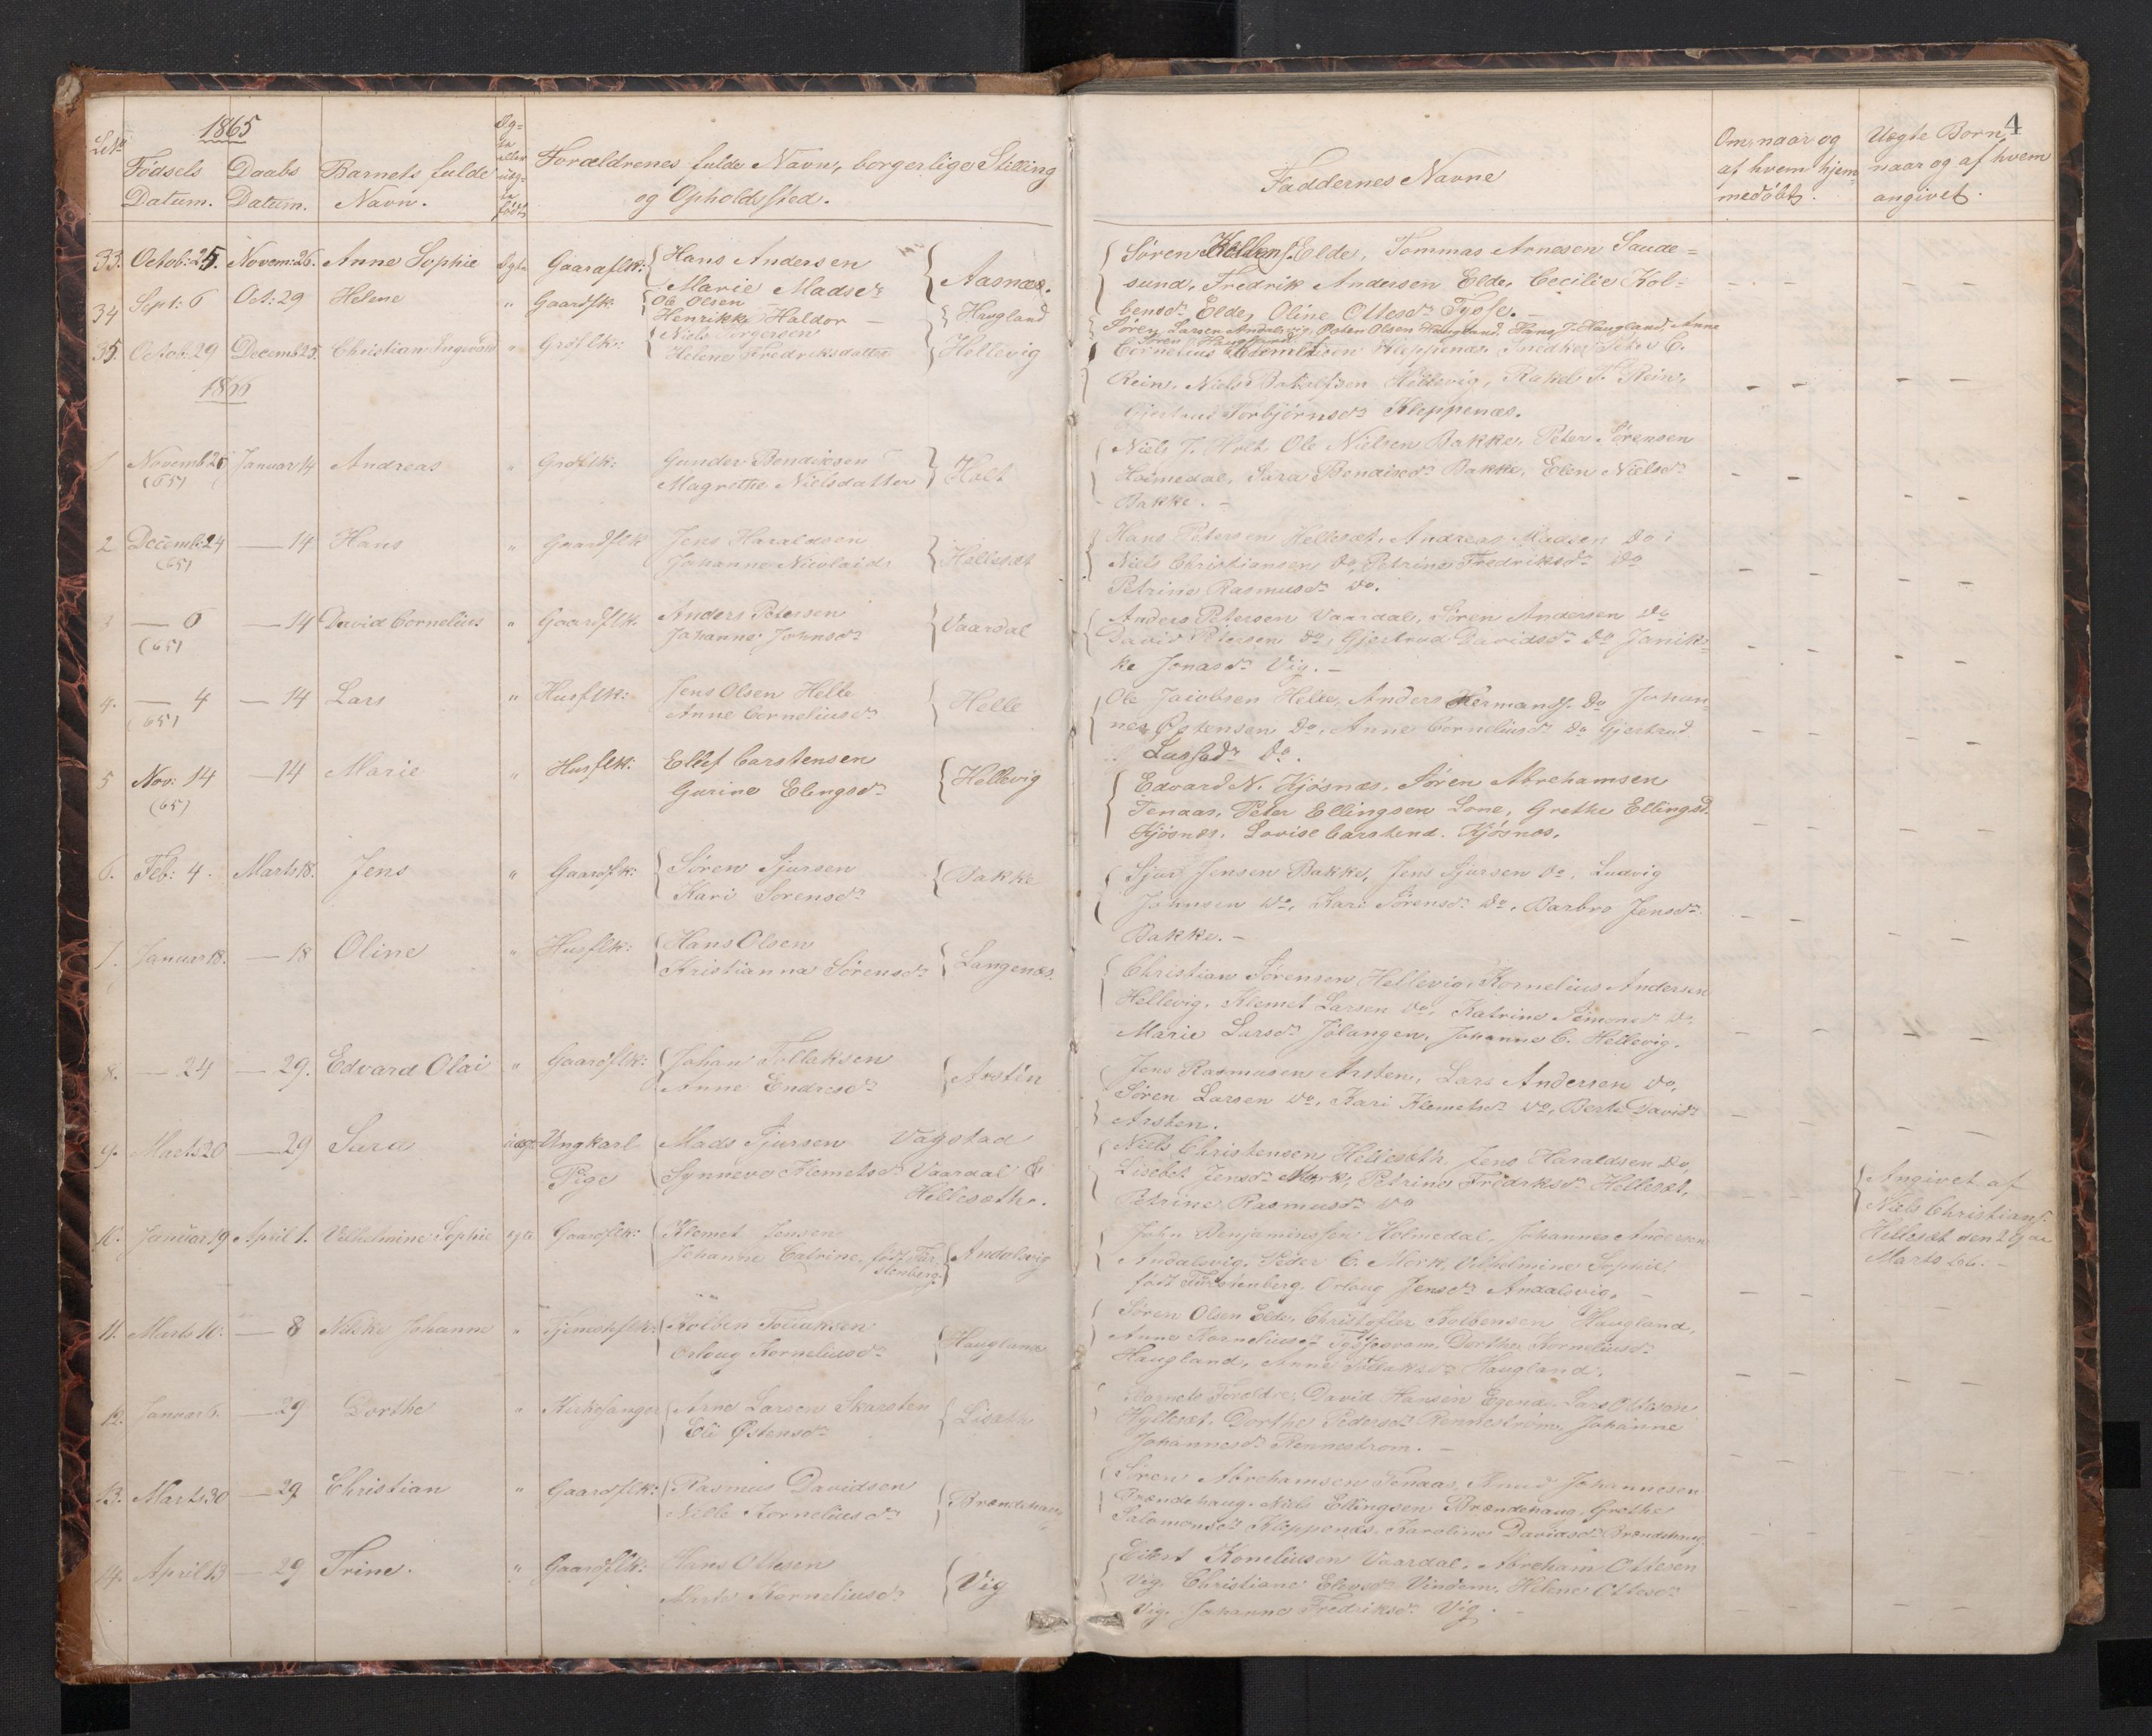 1865
L.No
Fødsels Datum.
Daabs Datum.
Barnets fulde Navn.
Æg-
te
eller
uæg-
te
født
Forældrenes fulde Navn, borgerlige Stilling
og Opholdssted.
Faddernes Navne
Om, naar og
af hvem hjem-
medøbt.
Uægte Børn,
naar og af hvem
angivet.
4
33. Octob: 25. Novem: 26. Anne Sophie ægte Gaardflk: Hans Andersen
Marie Madsdr Aasnæs.
Søren Elde, Tommas Arnesen Saude=
sund, Fredrik Andersen Elde, Cecilie Kol=
bensdr Elde, Oline Ottesdr Tysse.
34 Sept: 6 Oct: 29 Helene " Gaardflk: Ole Olsen
Henrikke Haldor — Haugland
Søren Larsen Andalsvig, Østen Olsen Haugland, Hans J. Haugland, Anne
Søren Haugland
35. Octob: 29 Decemb 25. Christian Ingevald " Grdflk: Niels Torgersen
Helene Fredriksdatter Hellevig
Cornelius Kleppenæs, Snedker Peter C.
Rein, Niels Hellevig, Rakel Rein,
Gjertrud Torbjørnsdr Kleppenæs.
1866
1 Novemb 26 Januar 14 Andreas " Grdflk: Gunder Bendiksen
(65) Magrethe Nielsdatter Holt
Niels J. Holt Ole Nielsen Bakke, Peter Sørensen
Holmedal, Sara Bendixdr Bakke, Elen Nielsdr
Bakke. —
2 Decemb: 24 — 14 Hans " Gaardflk Jens Haraldsen
(65) Johanne Nicolaidr Hellesæt
Hans Petersen Hellesæt, Andreas Madsen Do
Niels Christiansen Do, Petrine Fredriksdr Do
Petrine Rasmusdr Do.
3 — 6 — 14 David Cornelius " Gaardflk: Anders Petersen
(65) Johanne Johnsdr Vaardal
Anders Petersen Vaardal, Søren Andersen Do
David Petersen Do, Gjertrud Davidsdr Do Janik=
ke Jonasdr Vig. —
4. — 4 — 14 Lars " Husflk: Jens Olsen Helle
(65) Anne Corneliusdr Helle
Ole Jacobsen Helle, Anders Hermands. Do Johan=
nes Østensen Do, Anne Corneliusdr Do Gjertrud
Larsdr Do.
5 Nov: 14 — 14 Marie " Husflk: Ellef Carstensen
(65) Gurine Elingsdr Hellevig
Edvard N. Kjøsnæs, Søren Abrehamsen
Tenaas, Peter Ellingsen Lone, Grethe Ellingsd.
Kjøsnæs, Lovise Carstend. Kjøsnæs.
6. Feb: 4. Marts 18. Jens " Gaardflk: Søren Sjursen
Kari Sørensdr Bakke
Sjur Jensen Bakke, Jens Sjursen Do, Ludvig
Johnsen Do, Kari Sørensdr Do, Barbro Jensdr
Bakke. —
7. Januar 18. — 18 Oline " Husflk: Hans Olsen
Kristianna Sørensdr Langenæs.
Christian Sørensen Hellevig, Kornelius Andersen
Hellevig, Klemet Larsen Do, Katrine Simonsdr Do,
Marie Larsdr Jølangen, Johanne C. Hellevig.
8. — 24 — 29. Edvard Olai " Gaardflk: Johan Tollaksen
Anne Endresdr Arsten
Jens Rasmusen Arsten, Lars Andersen Do,
Søren Larsen Do, Kari Klemetsdr Do, Berte Davidsdr
Arsten.
9. Marts 20 — 29 Sara uægte Ungkarl Mads Sjursen Vagstad
Pige Synneve Klemetsdr Vaardal &
Hellesæth.
Niels Christensen Hellesæth, Jens Haraldsen Do,
Lisebet Jensdr Mork, Petrine Fredriksdr Hellesæt,
Petrine Rasmusdr Do
Angivet af
Niels Christians.
Hellesæt den 29de
Marts 66. —
10. Januar 19 April 1. Vilhelmine Sophie ægte Gaardflk: Klemet Jensen
Johanne Catrine, født Für-
stenberg. Andalsvig
John Benjaminssen Holmedal, Johannes Andersen
Andalsvig, Peder C. Mork, Vilhelmine Sophie
født Fürstenberg, Orloug Jensdr Andalsvig.
11. Marts 10. — 8 Nilske Johanne " Tjenesteflk: Kolben Tollaksen
Orloug Korneliusdr Haugland
Søren Olsen Elde, Christoffer Kolbensen Haugland,
Anne Korneliusdr Dorthe Korneliusdr
Haugland, Anne Tollaksdr Haugland.
12. Januar 6. — 29 Dorthe " Kirkesanger Arne Larsen Skarsten
Eli Østensdr Lisæth
Barnets Forældre, David Hansen Egenæs, Lars Ottesen
Hyllesæt, Dorthe Pedersdr Rennestrøm, Johanne
Johannesdr Rennestrøm. —
13. Marts 30 — 29 Christian " Gaardflk: Rasmus Davidsen
Nille Korneliusdr Brændehaug
Søren Abrehamsen Tenaas, Knud Johannesen
Brændehaug, Niels Ellingsen Brændehaug, Grethe
Salomonsdr Kleppenæs, Karoline Davidsdr Brændehaug
14. April 13 — 29 Trine. " Gaardflk: Hans Ottesen
Marte Korneliusdr Vig
Eilert Korneliusen Vaardal, Abreham Ottesen
Vig, Christiane Elevsdr Vindem, Helene Ottesdr
Vig, Johanne Fredriksdr Vig.